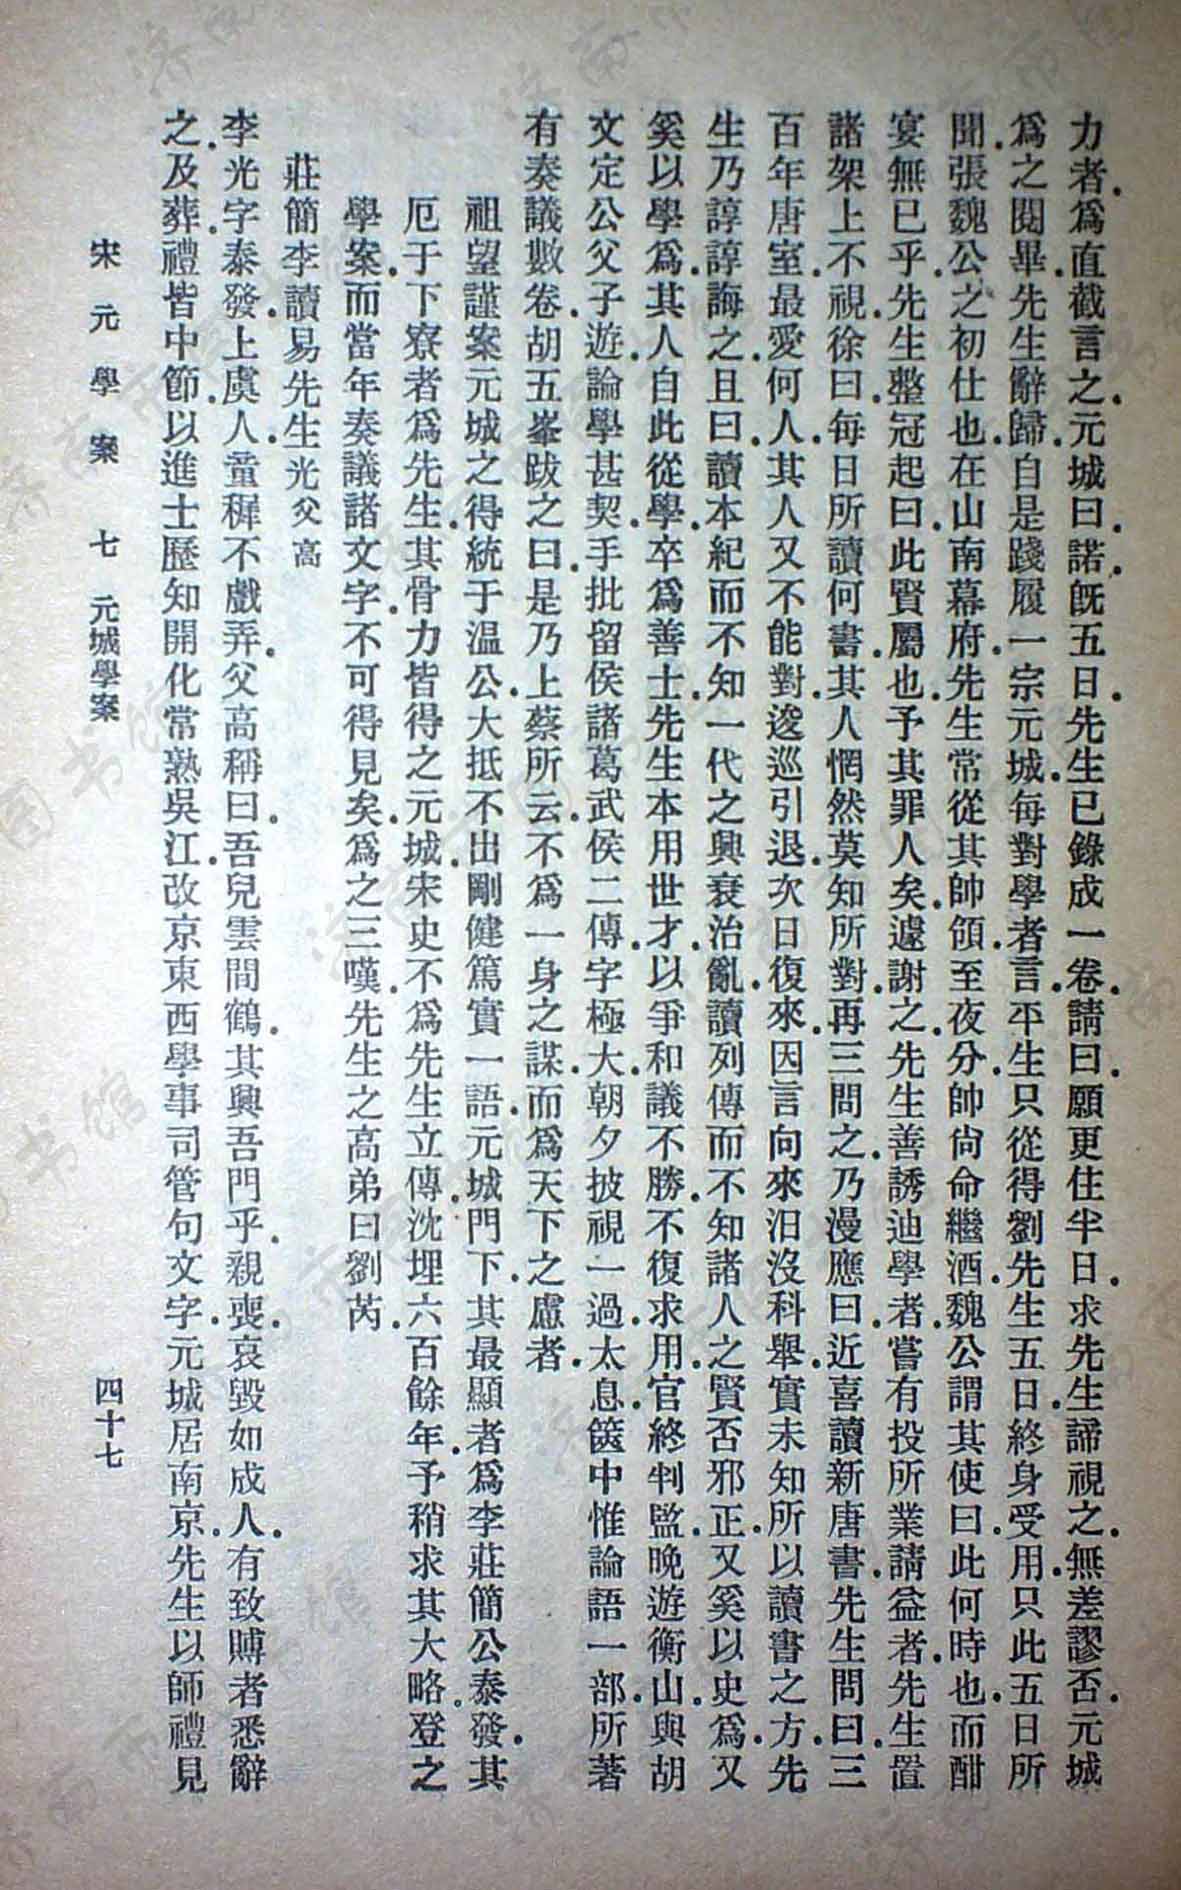 力者．爲直截言之．元城曰．諾．旣五日．先生已錄成一卷．請曰．願更住半日．求先生諦視之．無差謬否．元城
爲之閱畢．先生辭歸．自是踐履一宗元城．每對學者言．平生只從得劉先生五日．終身受用．只此五日所
聞．張魏公之初仕也．在山南幕府．先生常從其帥領至夜分．帥尙命繼酒．魏公謂其使曰．此何時也．而酣
宴無已乎．先生整冠起曰．此賢屬也．予其罪人矣．遽謝之．先生善誘迪學者．嘗有投所業請益者．先生置
諸架上不視．徐曰．每日所讀何書．其人惘然莫知所對．再三問之．乃漫應曰．近喜讀新唐書．先生問曰．三
百年唐室．最愛何人．其人又不能對．逡巡引退．次日復來．因言向來汨沒科舉．實未知所以讀書之方．先
生乃諄諄誨之．且曰．讀本紀而不知一代之興衰治亂．讀列傳而不知諸人之賢否邪正．又奚以史爲．又
奚以學爲．其人自此從學．卒爲善士．先生本用世才．以爭和議不勝．不復求用．官終判監．晚遊衡山．與胡
文定公父子遊．論學甚契．手批留侯諸葛武侯二傳．字極大．朝夕披視一過．太息．篋中惟論語一部．所著
有奏議數卷．胡五峯跋之曰．是乃上蔡所云．不爲一身之謀．而爲天下之慮者．
祖望謹案元城之得統于温公．大抵不出剛健篤實一語．元城門下．其最顯者爲李莊簡公泰發．其
厄于下寮者爲先生．其骨力皆得之元城．宋史不爲先生立傳．沈埋六百餘年．予稍求其大略．登之
學案．而當年奏議諸文字．不可得見矣．爲之三嘆．先生之高弟曰劉芮．
莊簡李讀易先生光父高
李光字泰發．上虞人．童穉不戲弄．父高稱曰．吾兒雲間鶴．其興吾門乎．親喪．哀毀如成人．有致賻者悉辭
之．及葬．禮皆中節．以進士歷知開化常熟吳江．改京東西學事司管句文字．元城居南京．先生以師禮見
宋元學案 七 元城學案 四十七